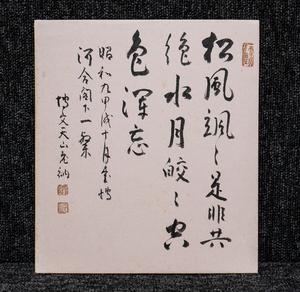 松風颯々是非共
絶水月皎々空
色渾忘
昭和九甲戌十月為博
河合閣下一粲
博文天山老衲